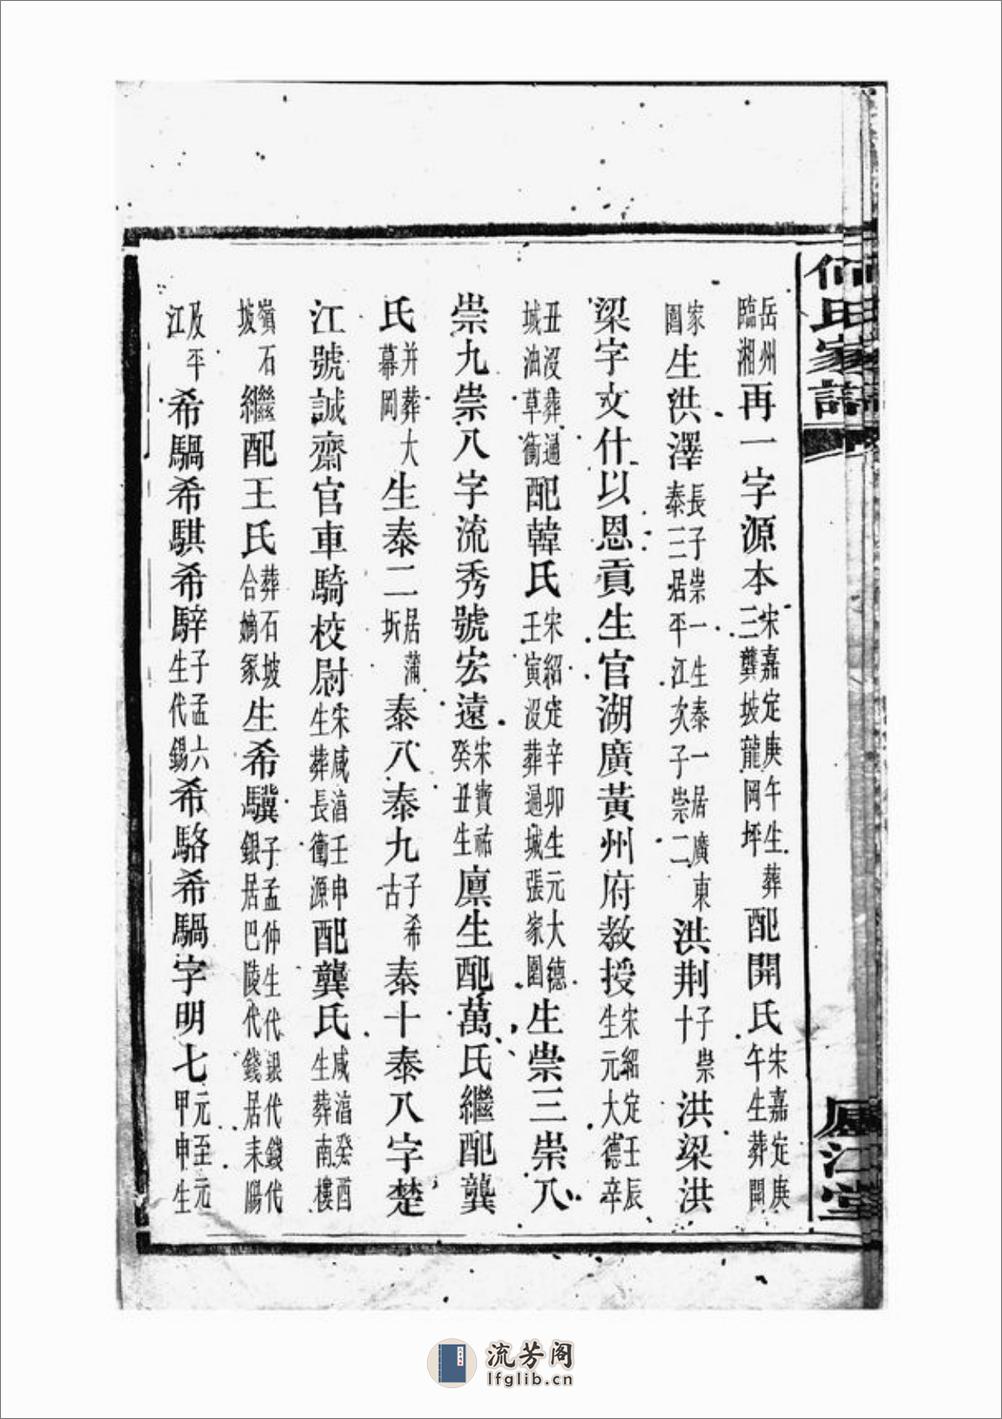 何氏家譜
廬江堂
岳州臨湘再一字源本宋嘉定庚午生葬三龔坡龍岡坪配開氏宋嘉定庚午生葬開
家園生洪澤長子崇一生泰一居廣東泰三居平江次子崇二洪荆子崇十洪梁洪
梁字文什以恩貢生官湖廣黃州府教授宋紹定壬辰生元大德卒
丑沒葬通城油草衝配韓氏宋紹定辛卯生元大德壬寅沒葬通城張家園生崇三崇八
崇九崇八字流秀號宏遠宋寶祐癸丑生廩生配萬氏繼配龔
氏并葬大幕岡生泰二居蒲圻泰八泰九子希古泰十泰八字楚
江號誠齋官車騎校尉宋咸淳壬申生葬長衝源配龔氏咸淳癸酉生葬南樓
嶺石坡繼配王氏葬石坡合嫡冢生希驥子孟仲生代銀代錢代銀居巴陵代錢居耒陽
及平江希騧希騏希騂子孟六生代錫希駱希騧字明七元至元甲申生
流芳阁
lfglib.cn